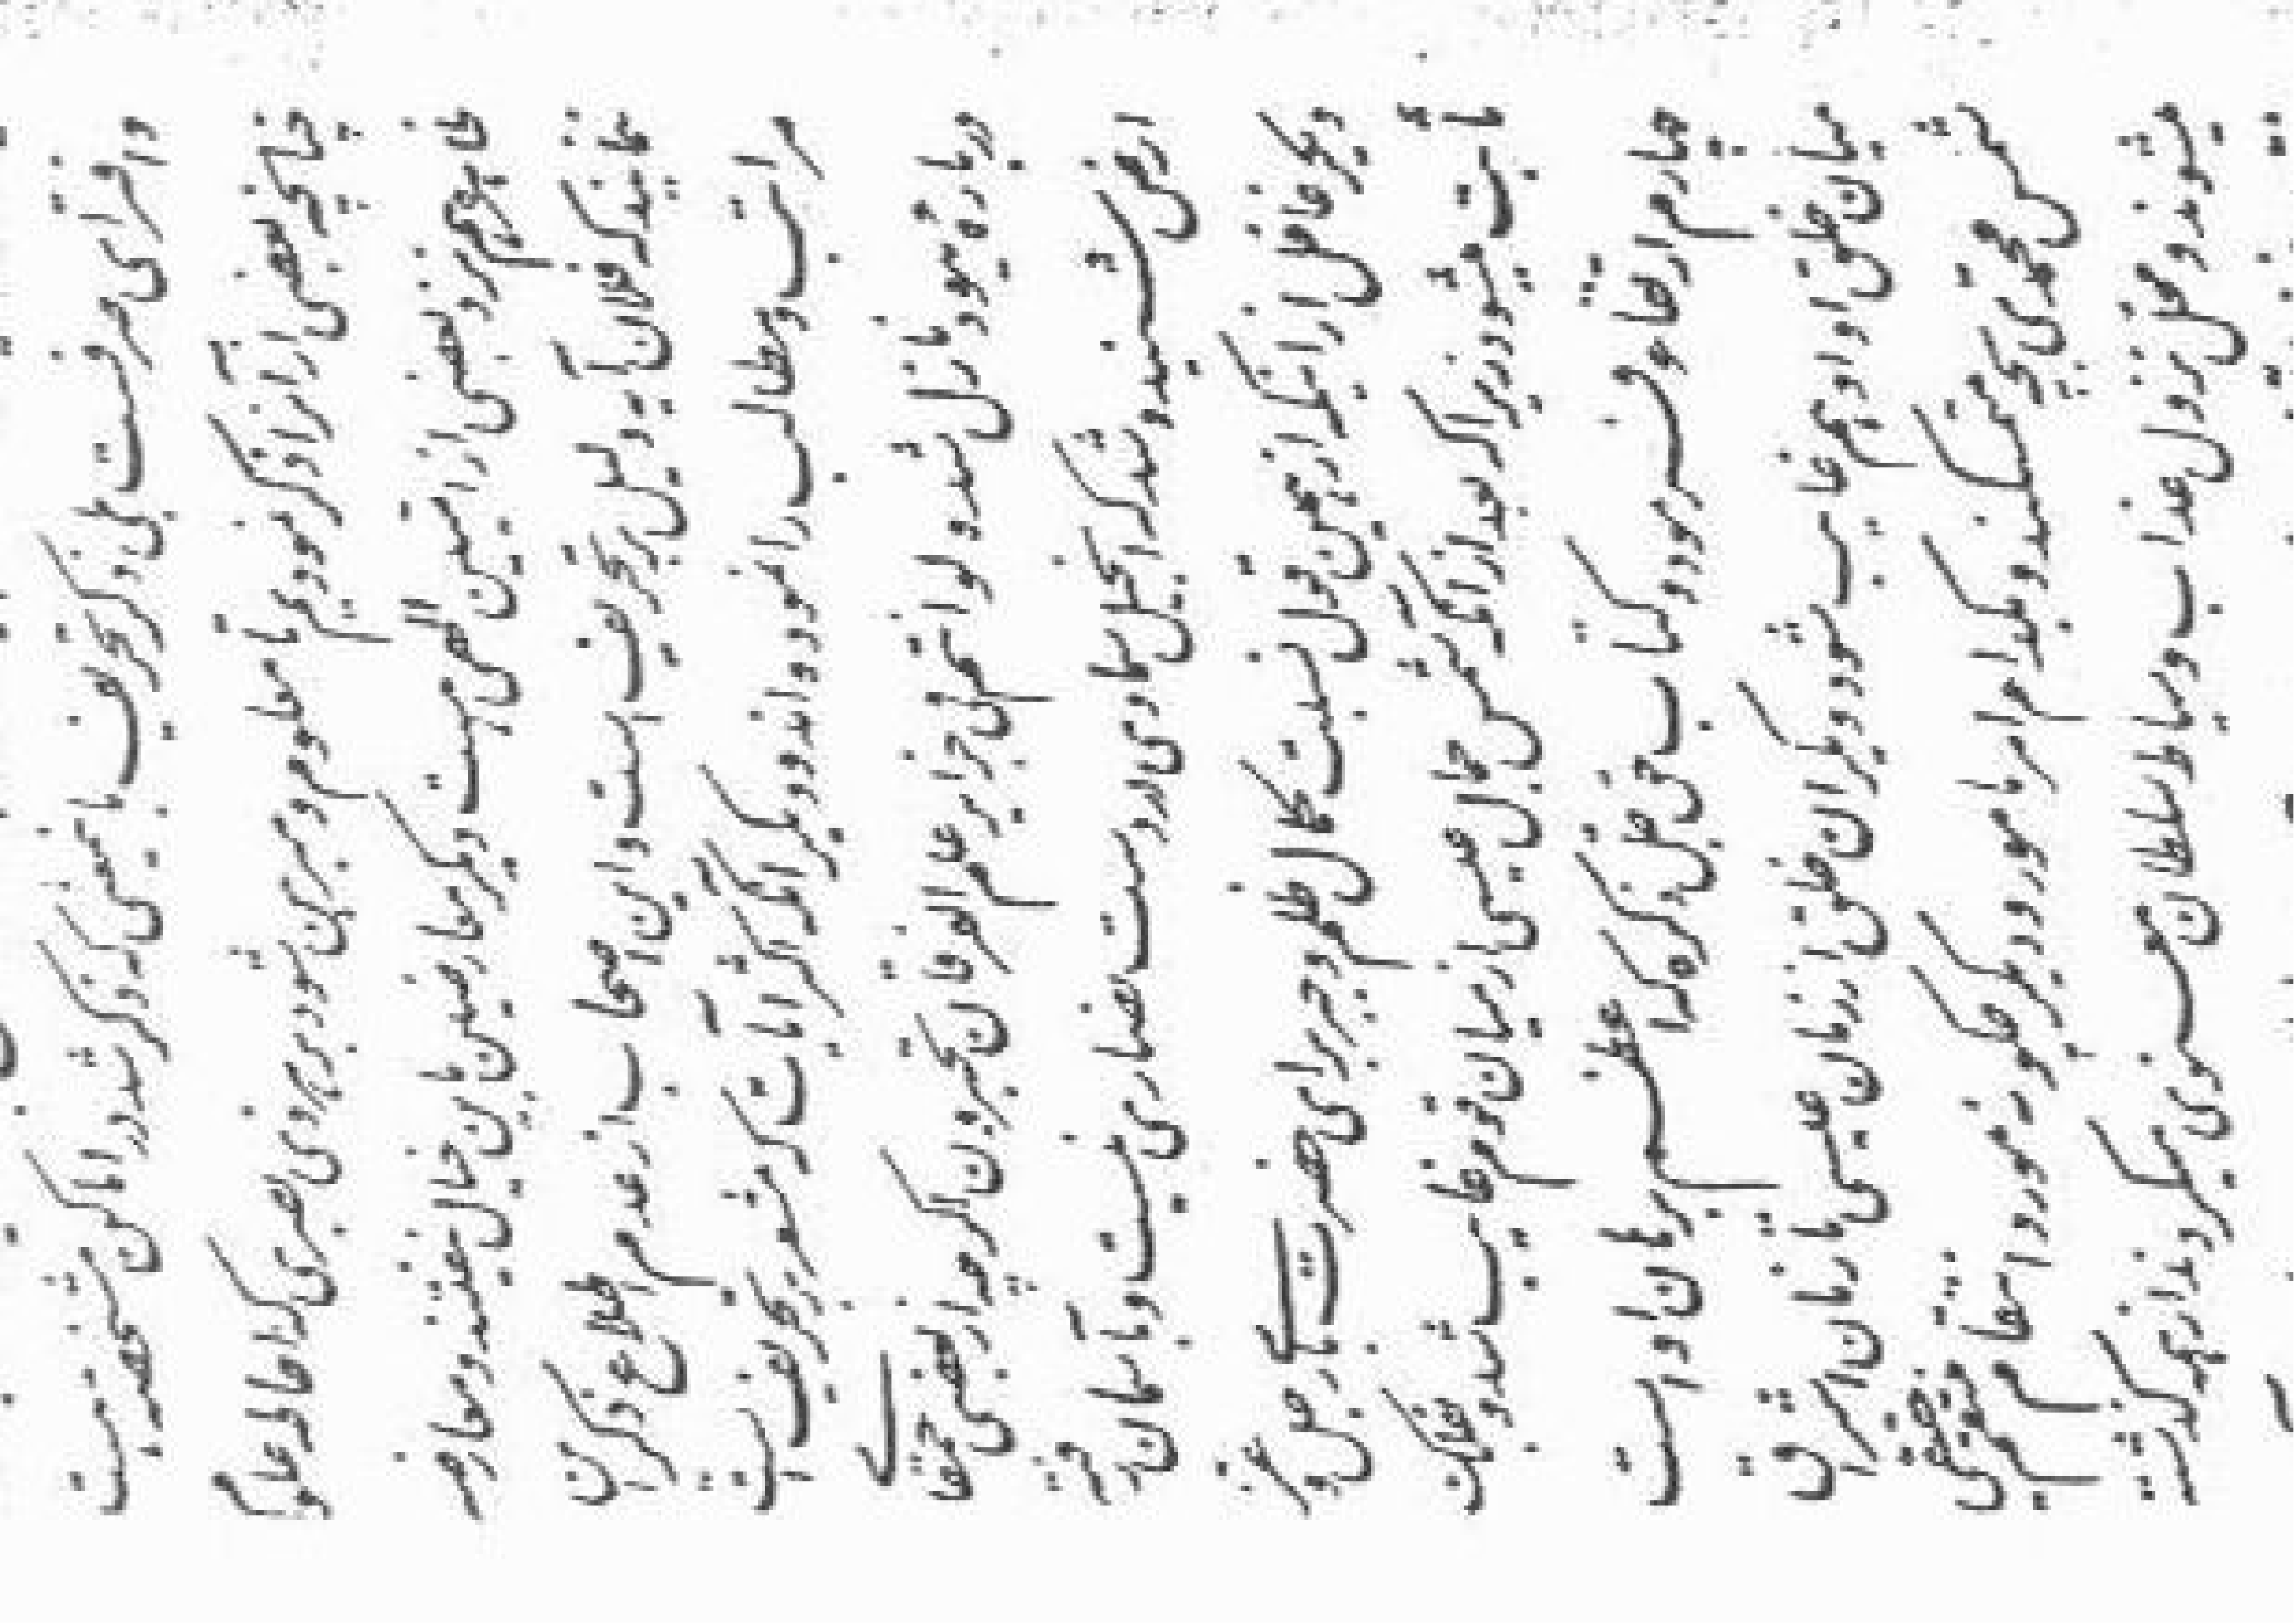 و افترای صرفست بلی ذکر تحریف باینمعنی که ذکر شد در اماکن مشخصه است
چنانچه بعضی از آنرا ذکر نمودیم تا معلوم و مبرهن شود بر هر ذی بصری که احاطه علوم
ظاهره هم نزد بعضی از امیین الهی هست دیگر معارضین باین خیال نیفتند و معارضه
نمایند که فلان آیه دلیل بر تحریف است و این اصحاب از عدم اطلاع ذکر این
مراتب و مطالب را نموده‌اند و دیگر آنکه اکثر آیات که مشعر بر تحریف است
درباره یهود نازل شده لو انتم فی جزایر علم الفرقان تحبرون اگر چه از بعضی حمقای
ارض شنیده شد که انجیل سماوی در دست نصاری نیست و بآسمان رفته
دیگر غافل از اینکه از همین قول نسبت کمال ظلم و جبر برای حضرت باری جل و عز
ثابت میشود زیرا که بعد از آنکه شمس جمال عیسی از میان قوم غایب شد و بفلک
چهارم ارتقاء فرمود و کتاب حق جل ذکره که اعظم برهان اوست
میان خلق او او هم غایب شود دیگر آن خلق از زمان عیسی تا زمان اشراق
شمس محمدی بچه متمسکند و بکدام امر مامور و دیگر چگونه مورد انتقام منتقم حقیقی
میشوند و محل نزول عذاب و سیاط سلطان معنوی میگردند از همه گذشته